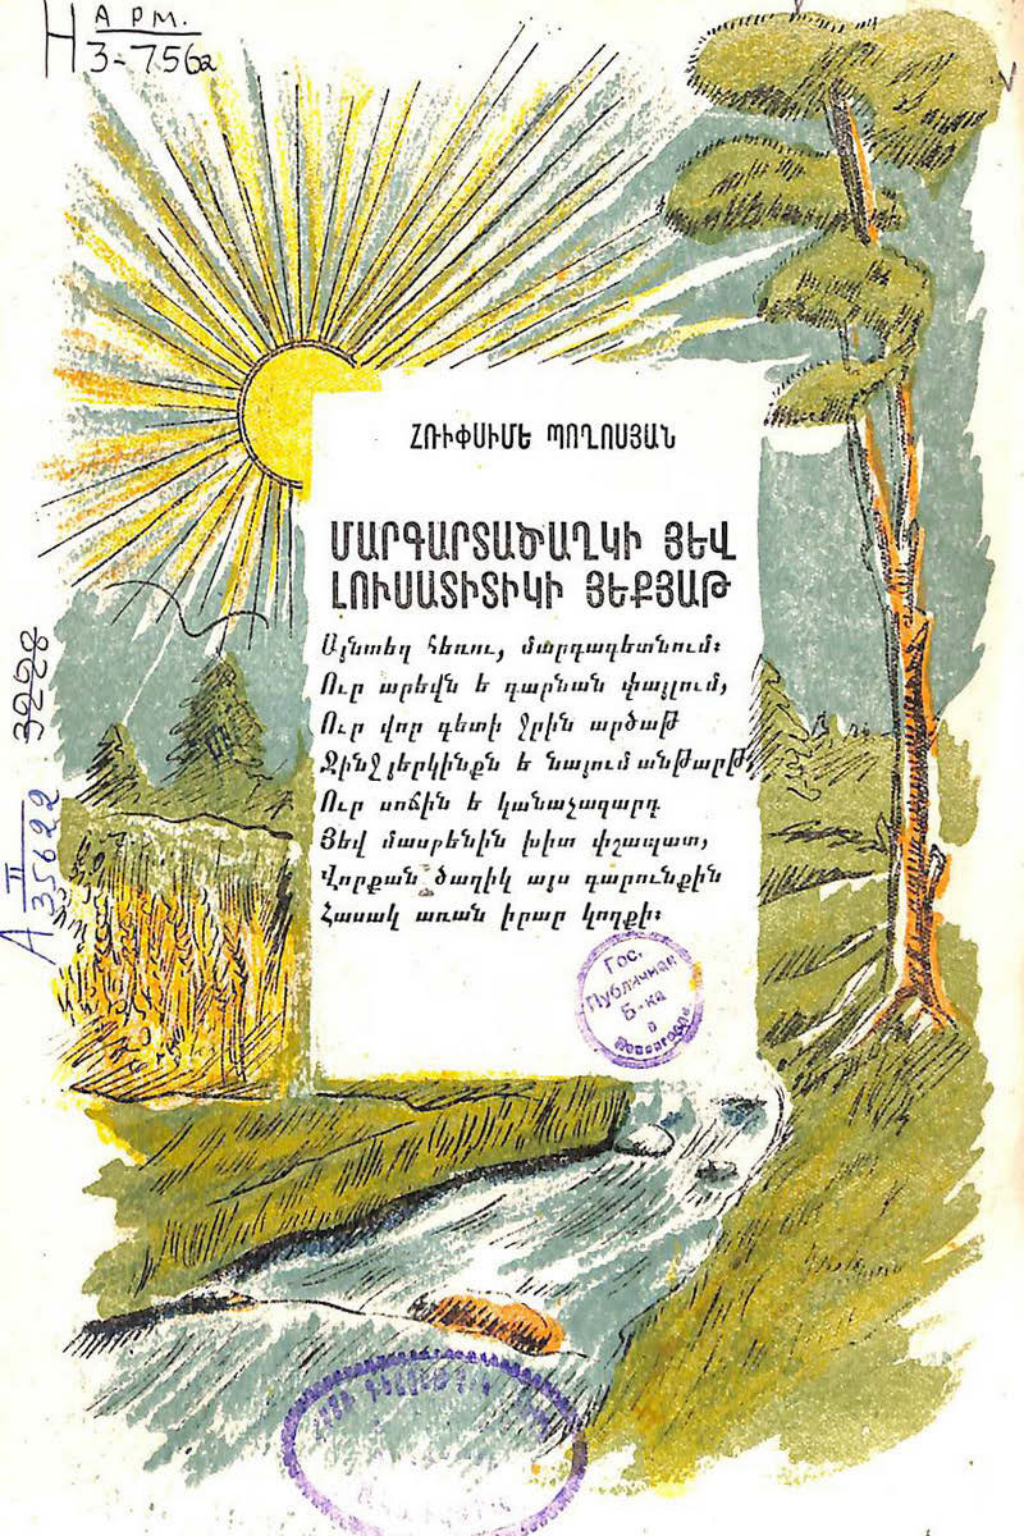 Н АРМ.
3-756а
ՀՌԻՓՍԻՄԵ ՊՈՂՈՍՅԱՆ
ՄԱՐԳԱՐՏԱԾԱՂԿԻ ՅԵՎ
ԼՈՒՍԱՏԻՏԻԿԻ ՅԵՔՅԱԹ
Այնտեղ հեռու, մարգագետնում։
Ուր արեվն ե գարնան փայլում,
Ուր վոր գետի ջրին արծաթ
Ջինջ յերկինքն ե նայում անթարթ,
Ուր սոճին ե կանաչազարդ
Յեվ մասրենին խիտ փշապատ,
Վորքան ծաղիկ այս գարունքին
Հասակ առան իրար կողքի։
3228
A II 35622
Гос.
Публичная
Б-ка
в